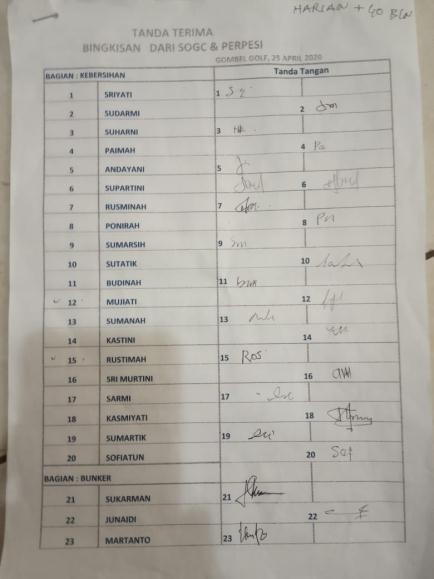 HARIAN + 40 BLN
TANDA TERIMA
BINGKISAN DARI SOGC & PERPESI
GOMBEL GOLF, 25 APRIL 2020
BAGIAN : KEBERSIHAN Tanda Tangan
1 SRIYATI 1 Sy
2 SUDARMI 2
3 SUHARNI 3
4 PAIMAH 4 Pa
5 ANDAYANI 5
6 SUPARTINI 6
7 RUSMINAH 7
8 PONIRAH 8 Pn
9 SUMARSIH 9 Sm
10 SUTATIK 10
11 BUDINAH 11
12 MUJIATI 12
13 SUMANAH 13
14 KASTINI 14
15 RUSTIMAH 15 ROS
16 SRI MURTINI 16
17 SARMI 17
18 KASMIYATI 18
19 SUMARTIK 19
20 SOFIATUN 20 Sof
BAGIAN : BUNKER
21 SUKARMAN 21
22 JUNAIDI 22
23 MARTANTO 23